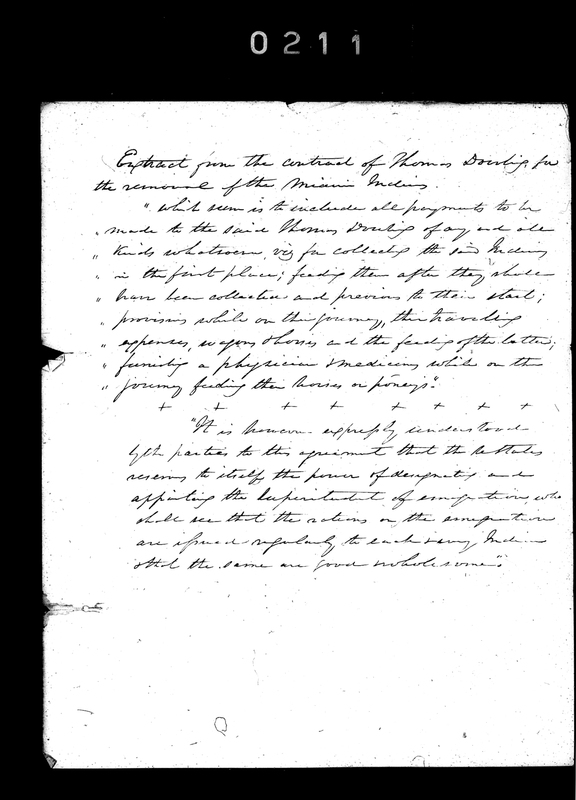 0211
Extract from the contract of Thomas Dowling for
the removal of the Miami Indians.
" which sum is to include all payments to be
" made to the said Thomas Dowling of any and all
" Kinds whatsoever, viz for collecting the said Indians
" in the first place; feeding them after they shall
" have been collected and previous to their start;
" provisions while on the journey, their travelling
" expenses, wagons & horses and the feeding of the latter;
" furnishing a physician & medicines while on the
" journey feeding their horses or poneys".
+ + + + + + + +
"It is however expressly understood
by the parties to this agreement that the U States
reserves to itself the power of designating and
appointing the Superintendent of emigration, who
shall see that the rations on the emigration
are issued regularly to each Indian
& that the same are good & wholesome".